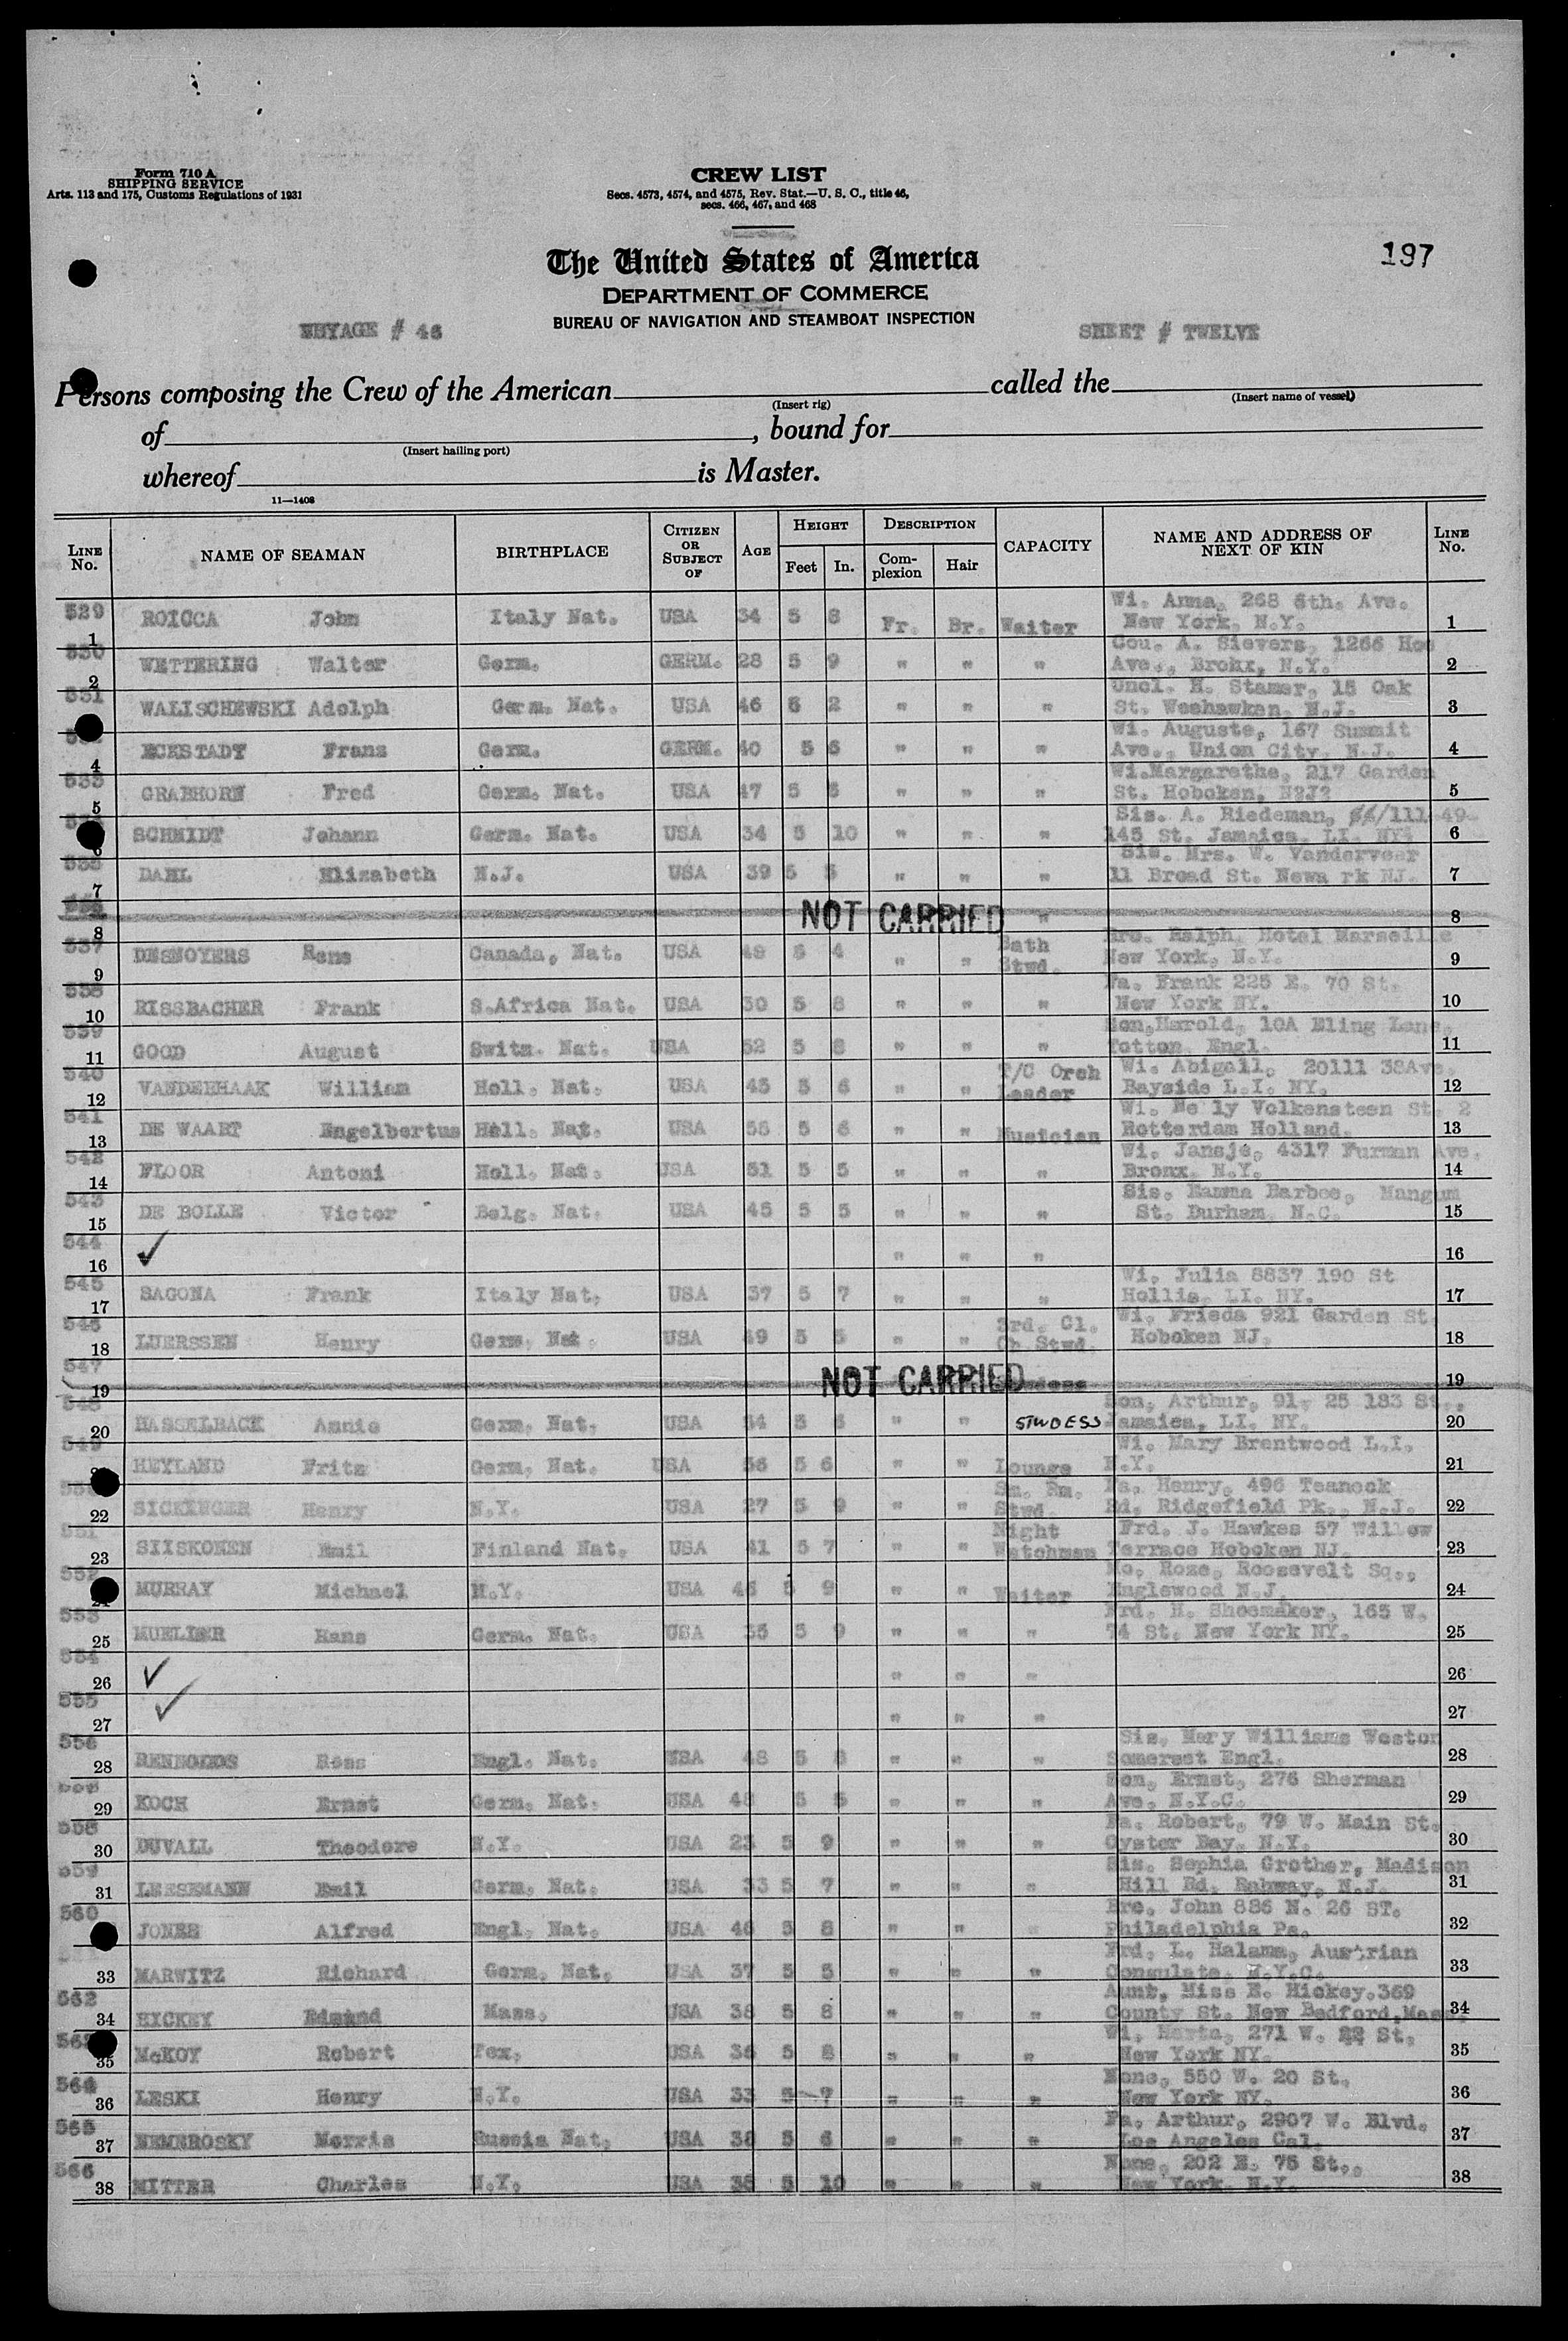 Form 710 A
SHIPPING SERVICE
Arts. 113 and 175, Customs Regulations of 1931
CREW LIST
Secs. 4573, 4574, and 4575, Rev. Stat.—U. S. C., title 46,
secs. 466, 467, and 468
The United States of America
DEPARTMENT OF COMMERCE
BUREAU OF NAVIGATION AND STEAMBOAT INSPECTION
197
VOYAGE # 46
SHEET # TWELVE
Persons composing the Crew of the American called the
(Insert rig) (Insert name of vessel)
of , bound for
(Insert hailing port)
whereof is Master.
11—1408
LINE No. NAME OF SEAMAN BIRTHPLACE CITIZEN OR SUBJECT OF AGE HEIGHT Feet In. DESCRIPTION Complexion Hair CAPACITY NAME AND ADDRESS OF NEXT OF KIN LINE No.
529 1 ROICCA John Italy Nat. USA 34 5 8 Fr. Br. Waiter Wi. Anna, 268 6th. Ave. New York, N.Y. 1
530 2 WETTERING Walter Germ. GERM. 28 5 9 " " " Cou. A. Sievers, 1266 Hoe Ave., Bronx, N.Y. 2
531 WALISCHEWSKI Adolph Germ. Nat. USA 46 5 2 " " " Uncl. H. Stamer, 15 Oak St. Weehawken, N.J. 3
4 ECKSTADT Franz Germ. GERM. 40 5 6 " " " Wi. Auguste, 167 Summit Ave., Union City, N.J. 4
533 5 GRABHORN Fred Germ. Nat. USA 47 5 5 " " " Wi. Margarethe, 217 Garden St. Hoboken, N2J2 5
6 SCHMIDT Johann Germ. Nat. USA 34 5 10 " " " Sis. A. Riedeman, /111-49- 145 St. Jamaica, LI. NY. 6
535 7 DAHL Elizabeth N.J. USA 39 5 5 " " " Sis. Mrs. W. Vanderveer 11 Broad St. Newa rk NJ. 7
8 NOT CARRIED " 8
537 9 DESNOYERS Rene Canada, Nat. USA 49 5 4 " " Bath Stwd. Bro. Ralph, Hotel Marseille New York, N.Y. 9
538 10 RISSBACHER Frank S.Africa Nat. USA 30 5 8 " " " Fa. Frank 225 E. 70 St. New York NY. 10
539 11 GOOD August Switz. Nat. USA 52 5 8 " " " Son, Harold, 10A Eling Lane, Totton, Engl. 11
540 12 VANDERHAAK William Holl. Nat. USA 45 5 6 " " T/C Orch Leader Wi. Abigail, 20111 38Ave. Bayside L.I. NY. 12
541 13 DE WAART Engelbertus Holl. Nat. USA 55 5 6 " " Musician Wi. Nelly Volkensteen St. 2 Rotterdam Holland. 13
542 14 FLOOR Antoni Holl. Nat. USA 51 5 5 " " " Wi. Jansje, 4317 Furman Ave. Bronx, N.Y. 14
543 15 DE BOLLE Victor Belg. Nat. USA 45 5 5 " " " Sis. Emma Barbee, Mangum St. Durham, N.C. 15
544 16 ✓ " " " 16
545 17 SAGONA Frank Italy Nat. USA 37 5 7 " " " Wi. Julia 8837 190 St Hollis, LI. NY. 17
546 18 LUERSSEN Henry Germ. Nat. USA 49 5 5 " " 3rd. Cl. Ch.Stwd. Wi. Frieda 921 Garden St. Hoboken NJ. 18
547 19 NOT CARRIED 19
548 20 HASSELBACK Annie Germ. Nat. USA 54 5 5 " " STWDESS Son, Arthur, 91, 25 183 St., Jamaica, LI. NY. 20
549 HEYLAND Fritz Germ. Nat. USA 56 5 6 " " Lounge Wi. Mary Brentwood L.I. N.Y. 21
22 SICKINGER Henry N.Y. USA 27 5 9 " " Sm. Rm. Stwd. Fa. Henry, 496 Teaneck Rd. Ridgefield Pk., N.J. 22
551 23 SIISKONEN Emil Finland Nat. USA 41 5 7 " " Night Watchman Frd. J. Hawkes 57 Willow Terrace Hoboken NJ. 23
552 MURRAY Michael N.Y. USA 46 5 9 " " Waiter Mo. Roze, Roosevelt Sq., Englewood N.J. 24
553 25 MUELLER Hans Germ. Nat. USA 35 5 9 " " " Frd. H. Shoemaker, 165 W. 74 St. New York NY. 25
554 26 ✓ " " " 26
555 27 ✓ " " " 27
556 28 Engl. Nat. USA 48 5 8 " " " Sis. Mary Williams Weston Somerset Engl. 28
29 KOCH Ernst Germ. Nat. USA 48 5 5 " " " Son, Ernst, 276 Sherman Ave. N.Y.C. 29
558 30 DUVALL Theodore N.Y. USA 23 5 9 " " " Fa. Robert, 79 W. Main St. Oyster Bay, N.Y. 30
559 31 LEESEMANN Emil Germ. Nat. USA 33 5 7 " " " Sis. Sophia Grother, Madison Hill Rd. Rahway, N.J. 31
560 JONES Alfred Engl. Nat. USA 46 5 8 " " " Bro. John 886 N. 26 ST. Philadelphia Pa. 32
33 MARWITZ Richard Germ. Nat. USA 37 5 5 " " " Frd. L. Halama, Austrian Consulate, N.Y.C. 33
562 34 HICKEY Edmund Mass. USA 38 5 8 " " " Aunt, Miss E. Hickey, 369 County St. New Bedford, Mass. 34
563 35 McKOY Robert Tex. USA 36 5 8 " " " Wi. 271 W. 22 St. New York NY. 35
564 36 LESKI Henry N.Y. USA 33 5 7 " " " None, 550 W. 20 St. New York NY. 36
565 37 NEMEROSKY Morris Russia Nat. USA 38 5 6 " " " Fa. Arthur, 2907 W. Blvd. Los Angeles Cal. 37
566 38 MITTER Charles N.Y. USA 38 5 10 " " " None, 202 E. 75 St., New York, N.Y. 38